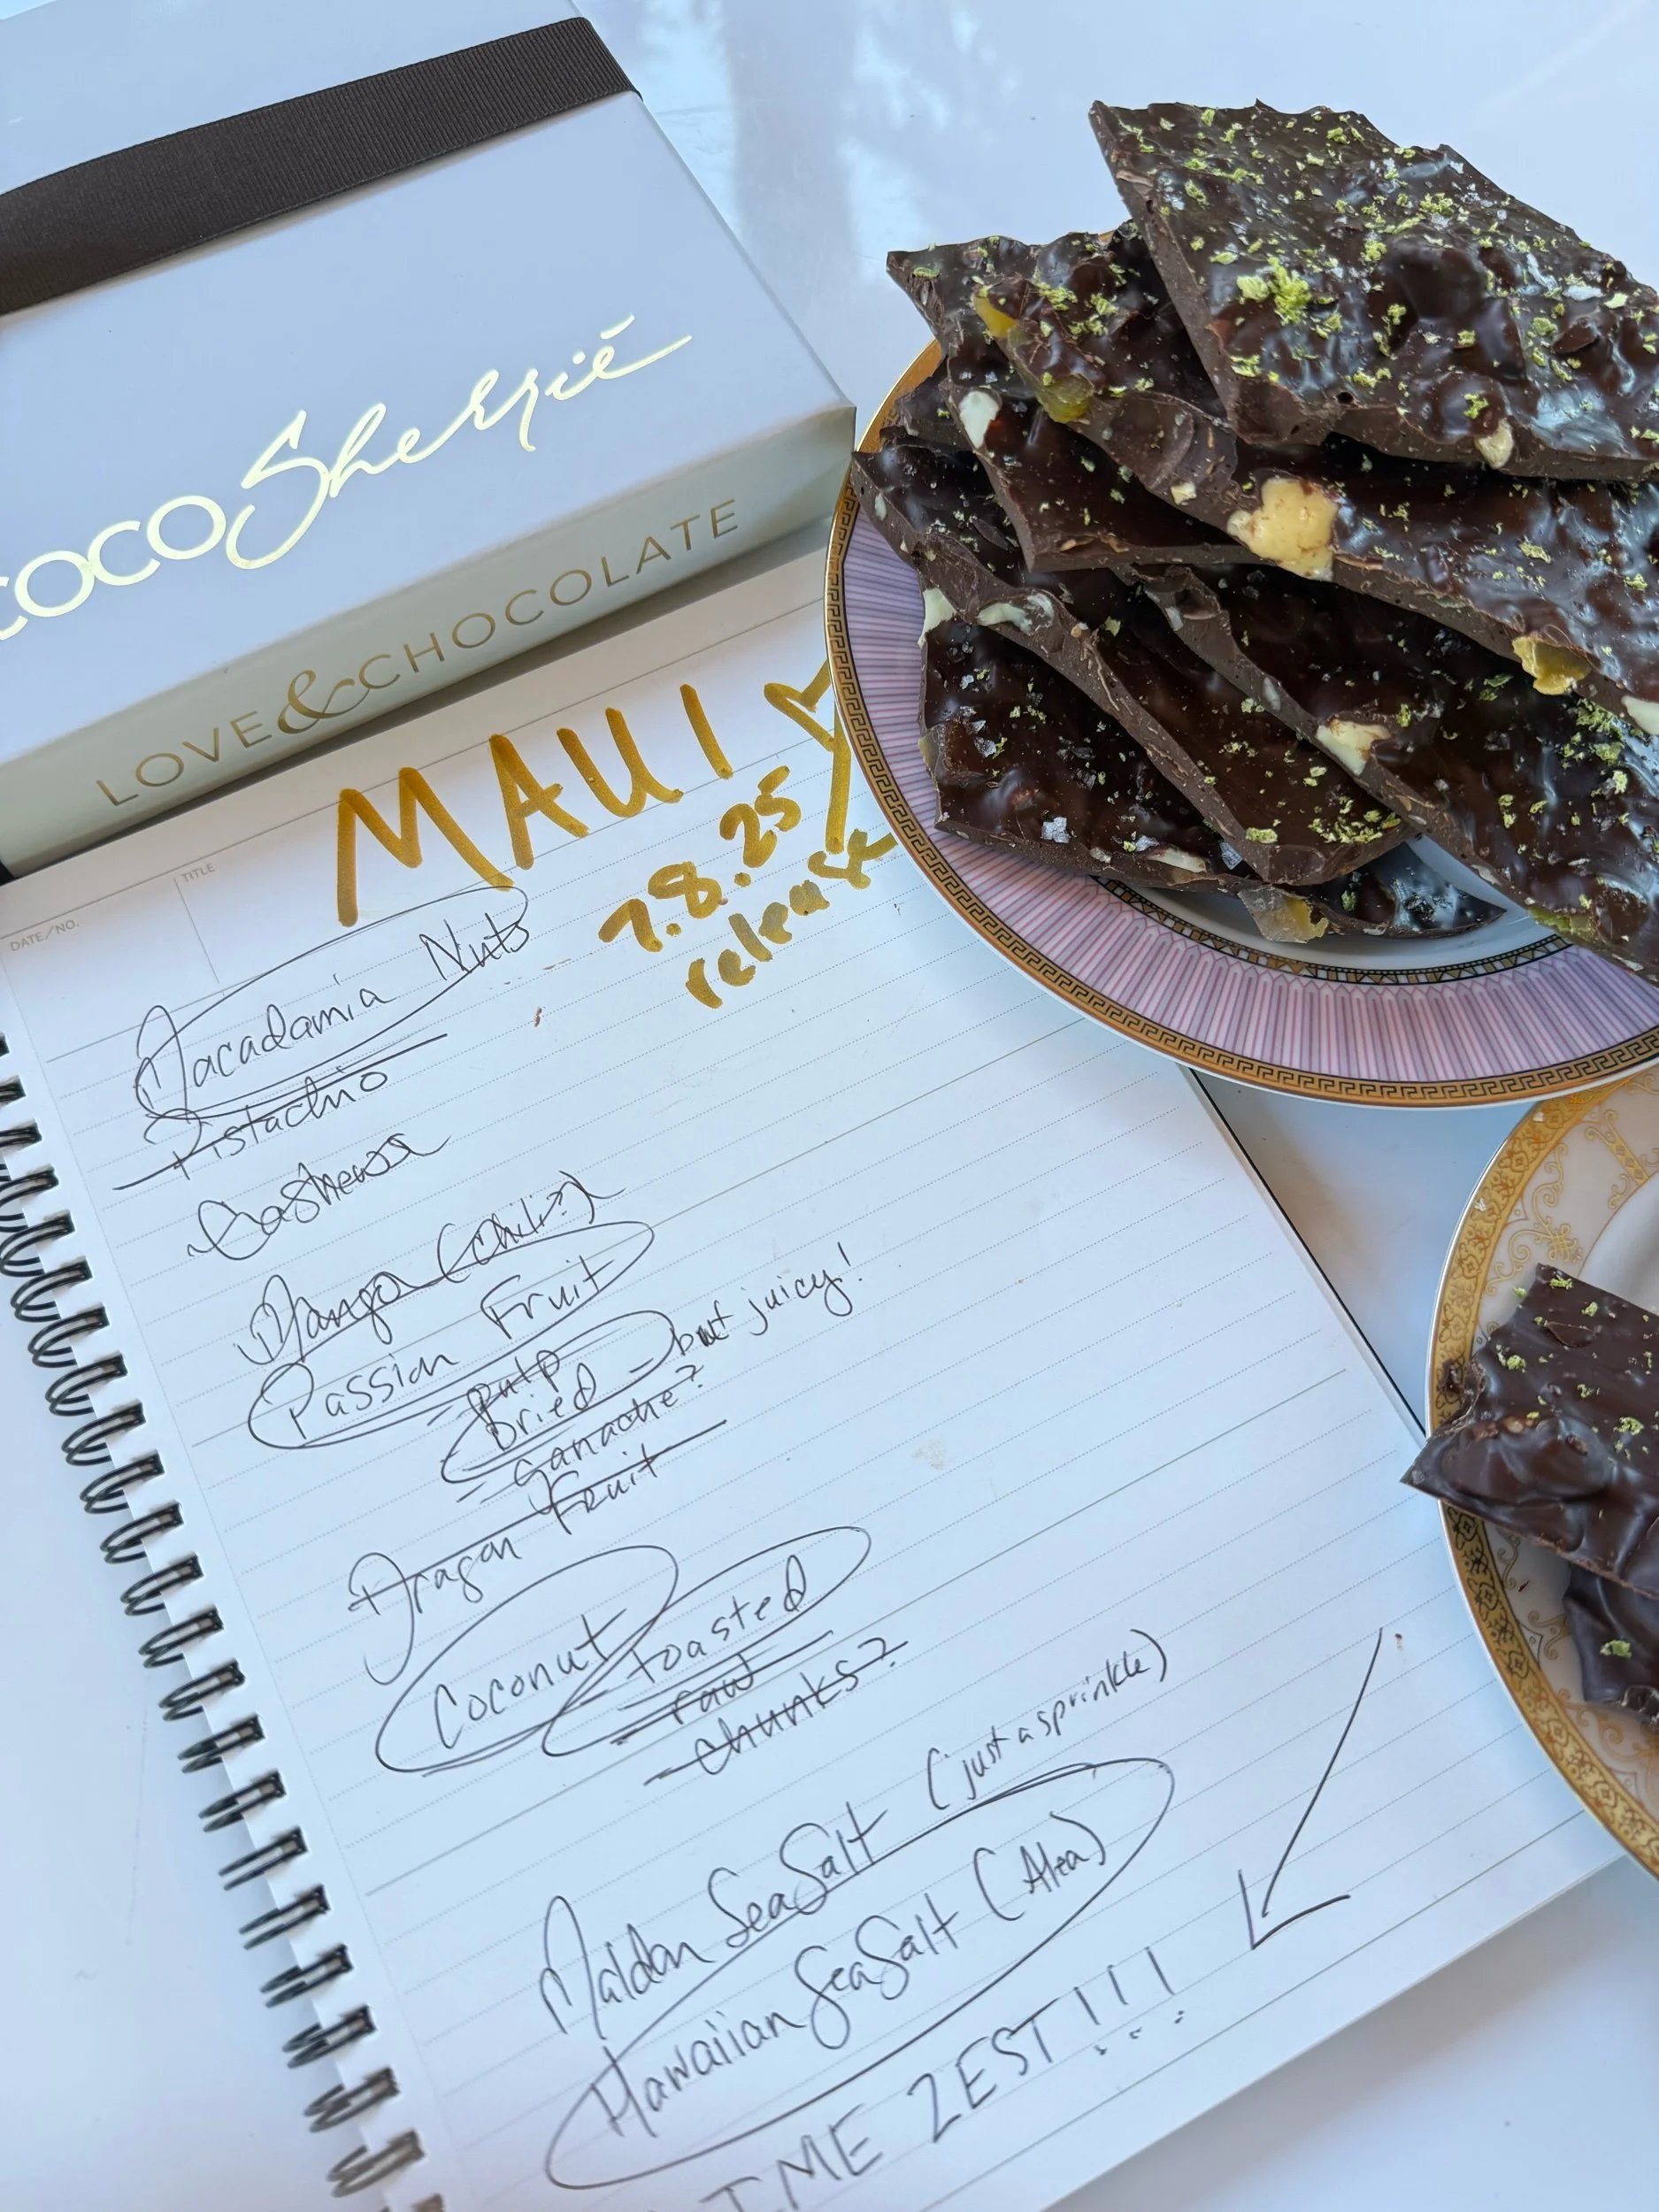 COCO Sherrié
LOVE & CHOCOLATE
MAUI
7.8.25
release
DATE/NO.
TITLE
Macadamia Nuts
Pistachio
Cashews
Mango (chili?)
Passion Fruit
- pulp
- Dried - but juicy!
- ganache?
Dragon Fruit
Coconut - toasted
- raw
- chunks?
Maldon Sea Salt (just a sprinkle)
Hawaiian Sea Salt (Alea)
LIME ZEST!!!